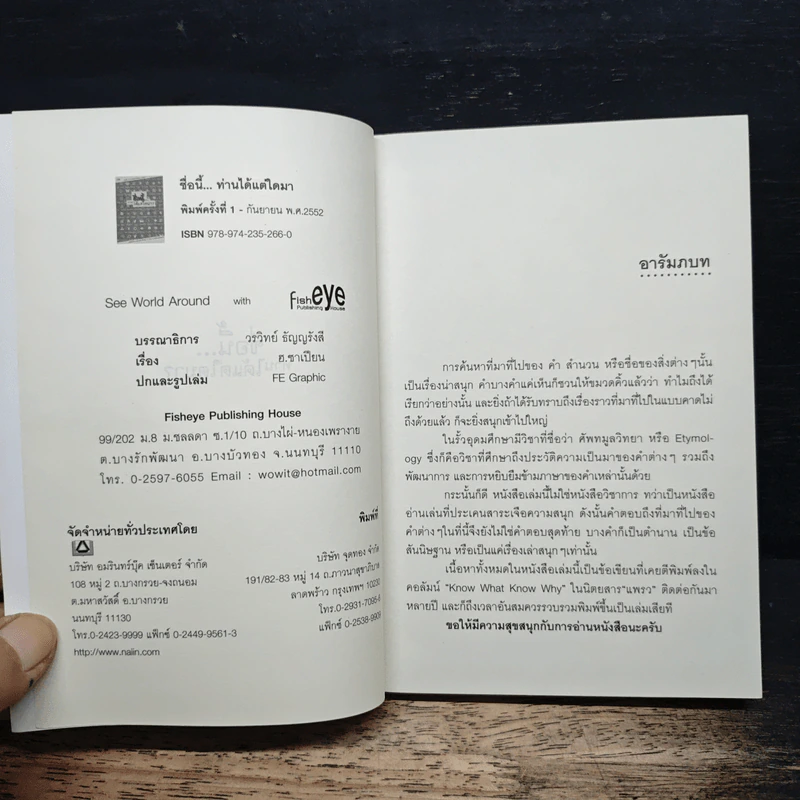 ชื่อนี้... ท่านได้แต่ใดมา
พิมพ์ครั้งที่ 1 - กันยายน พ.ศ.2552
ISBN 978-974-235-266-0
See World Around with fisheye Publishing House
บรรณาธิการ วรวิทย์ ธัญญรังสี
เรื่อง ฮ.ซาเปียน
ปกและรูปเล่ม FE Graphic
Fisheye Publishing House
99/202 ม.8 ม.ชลลดา ซ.1/10 ถ.บางไผ่-หนองเพรางาย
ต.บางรักพัฒนา อ.บางบัวทอง จ.นนทบุรี 11110
โทร. 0-2597-6055 Email : wowit@hotmail.com
จัดจำหน่ายทั่วประเทศโดย
บริษัท อมรินทร์บุ๊ค เซ็นเตอร์ จำกัด
108 หมู่ 2 ถ.บางกรวย-จงถนอม
ต.มหาสวัสดิ์ อ.บางกรวย
นนทบุรี 11130
โทร.0-2423-9999 แฟ็กซ์ 0-2449-9561-3
http://www.naiin.com
พิมพ์ที่
บริษัท จุดทอง จำกัด
191/82-83 หมู่ 14 ถ.ภาวนาสุขาภิบาล
ลาดพร้าว กรุงเทพฯ 10230
โทร.0-2931-7085-6
แฟ็กซ์ 0-2538-9909
อารัมภบท
การค้นหาที่มาที่ไปของ คำ สำนวน หรือชื่อของสิ่งต่างๆนั้น
เป็นเรื่องน่าสนุก คำบางคำแค่เห็นก็ชวนให้ขมวดคิ้วแล้วว่า ทำไมถึงได้
เรียกว่าอย่างนั้น และยิ่งถ้าได้รับทราบถึงเรื่องราวที่มาที่ไปในแบบคาดไม่
ถึงด้วยแล้ว ก็จะยิ่งสนุกเข้าไปใหญ่
ในรั้วอุดมศึกษามีวิชาที่ชื่อว่า ศัพทมูลวิทยา หรือ Etymol-
ogy ซึ่งก็คือวิชาที่ศึกษาถึงประวัติความเป็นมาของคำต่างๆ รวมถึง
พัฒนาการ และการหยิบยืมข้ามภาษาของคำเหล่านั้นด้วย
กระนั้นก็ดี หนังสือเล่มนี้ไม่ใช่หนังสือวิชาการ ทว่าเป็นหนังสือ
อ่านเล่นที่ประเคนสาระเจือความสนุก ดังนั้นคำตอบถึงที่มาที่ไปของ
คำต่างๆในที่นี้จึงยังไม่ใช่คำตอบสุดท้าย บางคำก็เป็นตำนาน เป็นข้อ
สันนิษฐาน หรือเป็นแค่เรื่องเล่าสนุกๆเท่านั้น
เนื้อหาทั้งหมดในหนังสือเล่มนี้เป็นข้อเขียนที่เคยตีพิมพ์ลงใน
คอลัมน์ "Know What Know Why" ในนิตยสาร"แพรว" ติดต่อกันมา
หลายปี และก็ถึงเวลาอันสมควรรวบรวมพิมพ์ขึ้นเป็นเล่มเสียที
ขอให้มีความสุขสนุกกับการอ่านหนังสือนะครับ